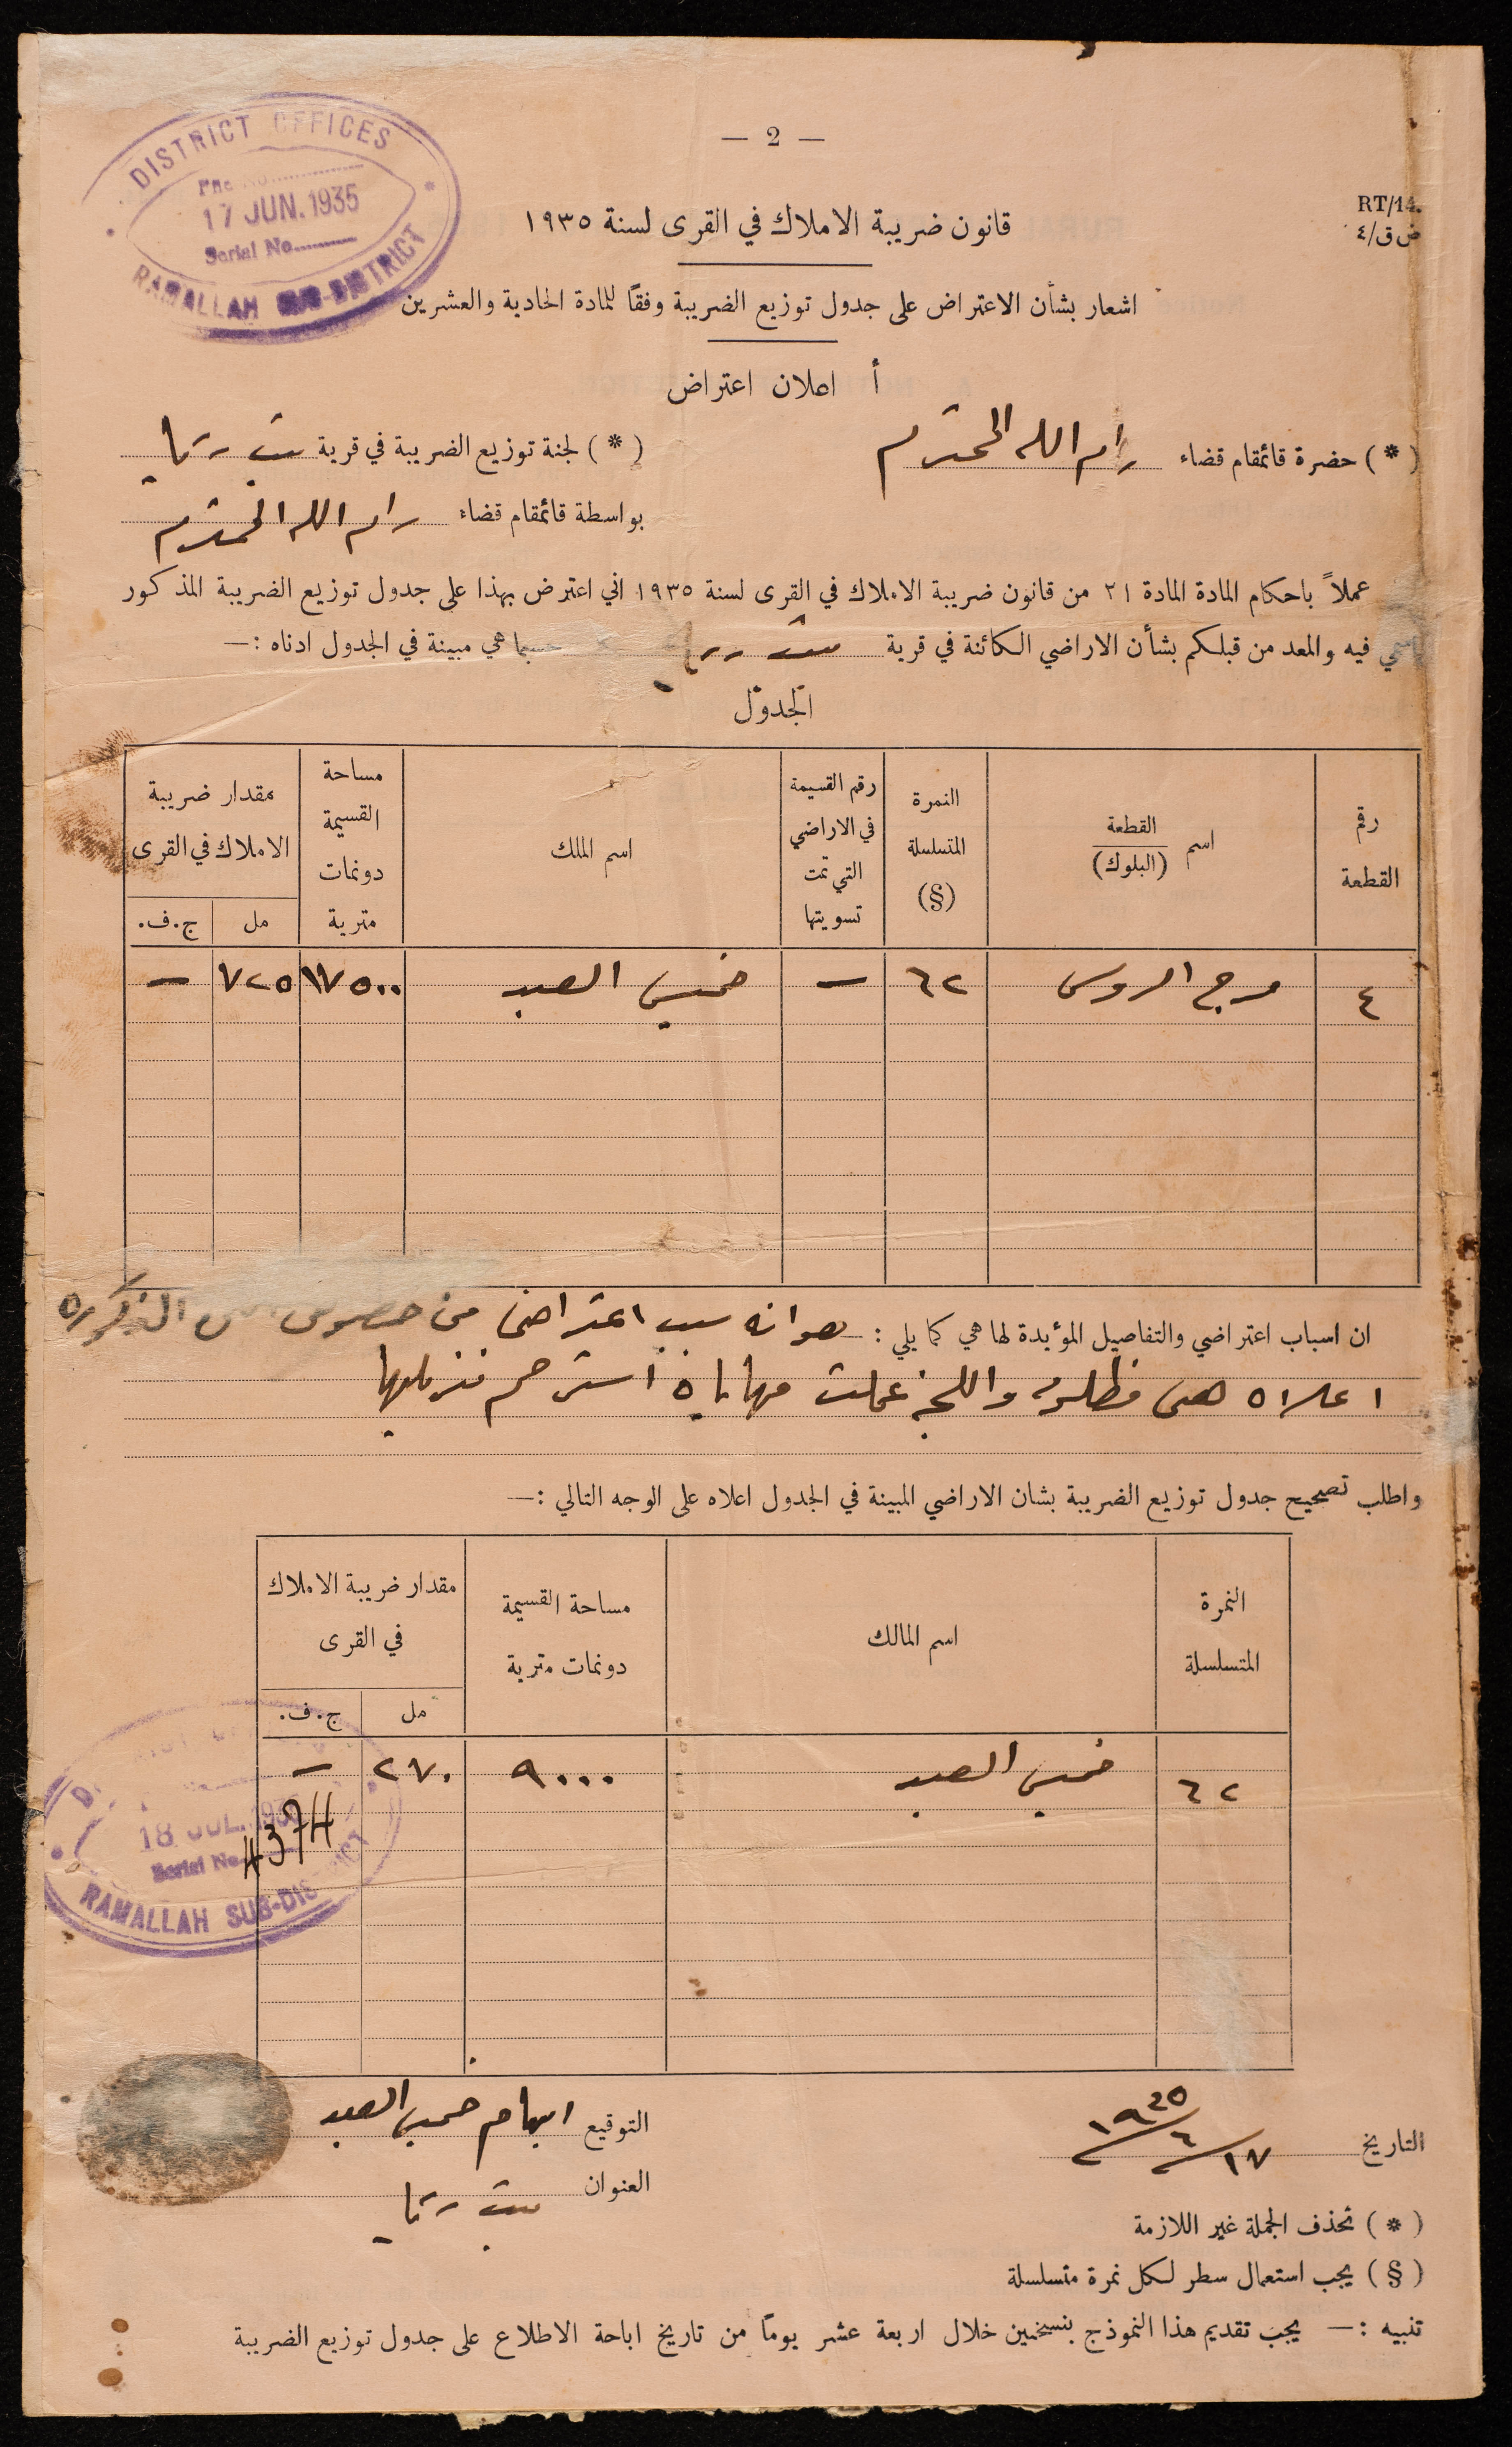 — 2 —
DISTRICT OFFICES
File No.
17 JUN. 1935
Serial No.
RAMALLAH SUB-DISTRICT
RT/14.
ض ق/٤
قانون ضريبة الاملاك في القرى لسنة ١٩٣٥
اشعار بشأن الاعتراض على جدول توزيع الضريبة وفقًا للمادة الحادية والعشرين
أ اعلان اعتراض
( * ) حضرة قائمقام قضاء رام الله المحترم
( * ) لجنة توزيع الضريبة في قرية بيت ريما
بواسطة قائمقام قضاء رام الله المحترم
عملاً باحكام المادة المادة ٢١ من قانون ضريبة الاملاك في القرى لسنة ١٩٣٥ اني اعترض بهذا على جدول توزيع الضريبة المذكور
اسمي فيه والمعد من قبلكم بشأن الاراضي الكائنة في قرية بيت ريما حسبما هي مبينة في الجدول ادناه :—
الجدول
رقم القطعة
اسم القطعة (البلوك)
النمرة المتسلسلة (§)
رقم القسيمة في الاراضي التي تمت تسويتها
اسم الملك
مساحة القسيمة دونمات مترية
مقدار ضريبة الاملاك في القرى
مل ج. ف.
٤ مرج الروس ٦٢ — خميس العبد ١٧٥٠٠ ٧٢٥ —
ان اسباب اعتراضي والتفاصيل المؤيدة لها هي كما يلي : هو انه سبب اعتراضي من خصوص المذكوره
اعلاه هي واللجنة عملت استرحم تنزيلها
واطلب تصحيح جدول توزيع الضريبة بشان الاراضي المبينة في الجدول اعلاه على الوجه التالي :—
النمرة المتسلسلة
اسم المالك
مساحة القسيمة دونمات مترية
مقدار ضريبة الاملاك في القرى
مل ج. ف.
٦٢ خميس العبد ٩٠٠٠ ٢٧٠ —
18 JUL. 193
Serial No.
4374
RAMALLAH SUB-DIS
التاريخ ١٧/٦/١٩٣٥
التوقيع ابهام خميس العبد
العنوان بيت ريما
( * ) تحذف الجملة غير اللازمة
( § ) يجب استعمال سطر لكل نمرة متسلسلة
تنبيه :— يجب تقديم هذا النموذج بنسختين خلال اربعة عشر يومًا من تاريخ اباحة الاطلاع على جدول توزيع الضريبة